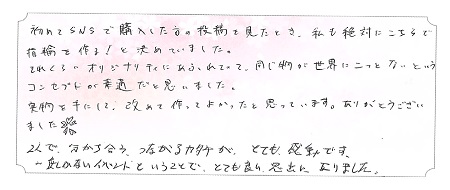 初めてSNSで購入した方の投稿を見たとき、私も絶対にこちらで
指輪を作る!と決めていました。
それくらいオリジナリティにあふれていて、同じ物が世界に二つとないという
コンセプトが素適だと思いました。
実物を手にして、改めて作ってよかったと思っています。ありがとうござい
ました
2人で、分かち合う、つながるカタチが、とても感動です。
一度しかないイベントということで、とても良い思い出になりました。